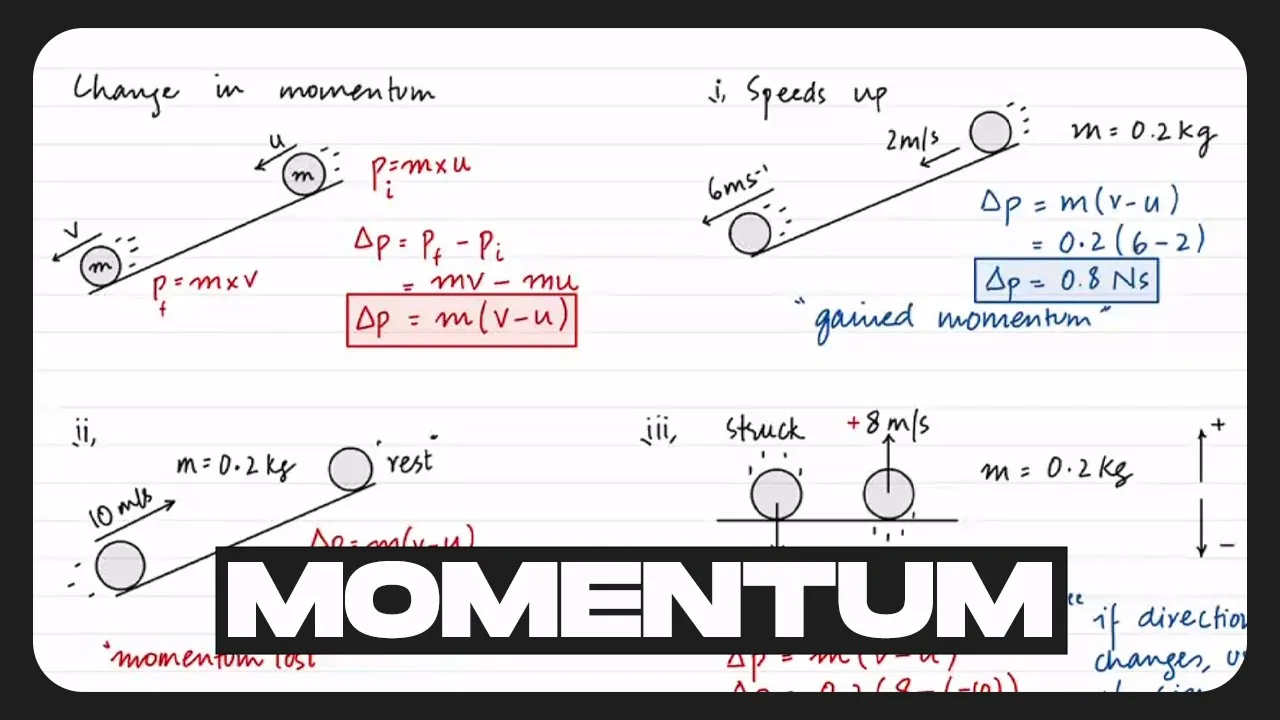 Change in momentum
u
m
pᵢ = m x u
v
m
p_f = m x v
Δp = P_f - Pᵢ
= mv - mu
Δp = m(v-u)
i, Speeds up
2m/s
m = 0.2 kg
6ms⁻¹
Δp = m(v-u)
= 0.2(6-2)
Δp = 0.8 Ns
"gained momentum"
ii,
m = 0.2 kg
"rest"
10 m/s
Δp = m(v-u)
"momentum lost"
iii,
struck
+8 m/s
m = 0.2 kg
+
-
if
changes,
Δp = m(v-u)
Δp = 0.2(8-(-10))
MOMENTUM